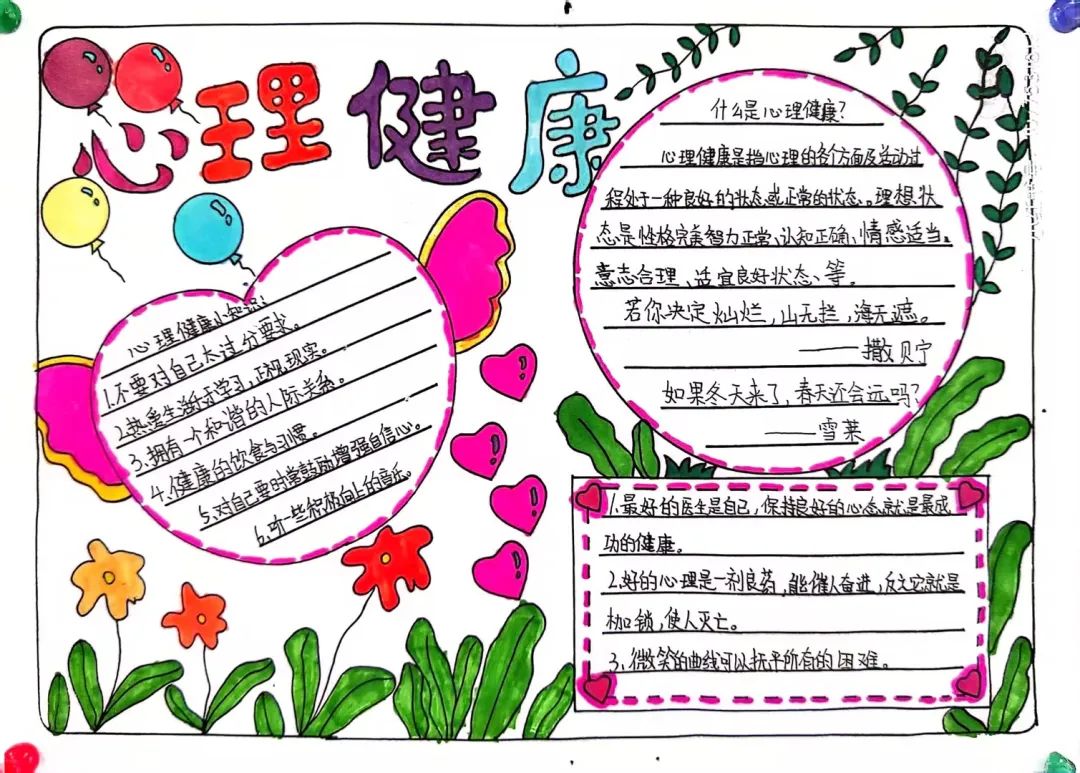 心理健康
心理健康小知识:
1.不要对自己太过分要求。
2.热爱生活乐于学习,正视现实。
3、拥有一个和谐的人际关系。
4、健康的饮食与习惯。
5、对自己要时常鼓励增强自信心。
6、听一些积极向上的音乐。
什么是心理健康?
心理健康是指心理的各个方面及活动过
程处于一种良好的状态或正常的状态。理想状
态是性格完美智力正常、认知正确、情感适当。
意志合理、适宜良好状态、等。
若你决定灿烂,山无拦,海无遮。
——撒贝宁
如果冬天来了,春天还会远吗?
——雪莱
1.最好的医生是自己,保持良好的心态就是最成
功的健康。
2.好的心理是一剂良药,能催人奋进,反之它就是
枷锁,使人灭亡。
3、微笑的曲线可以抚平所有的困难。